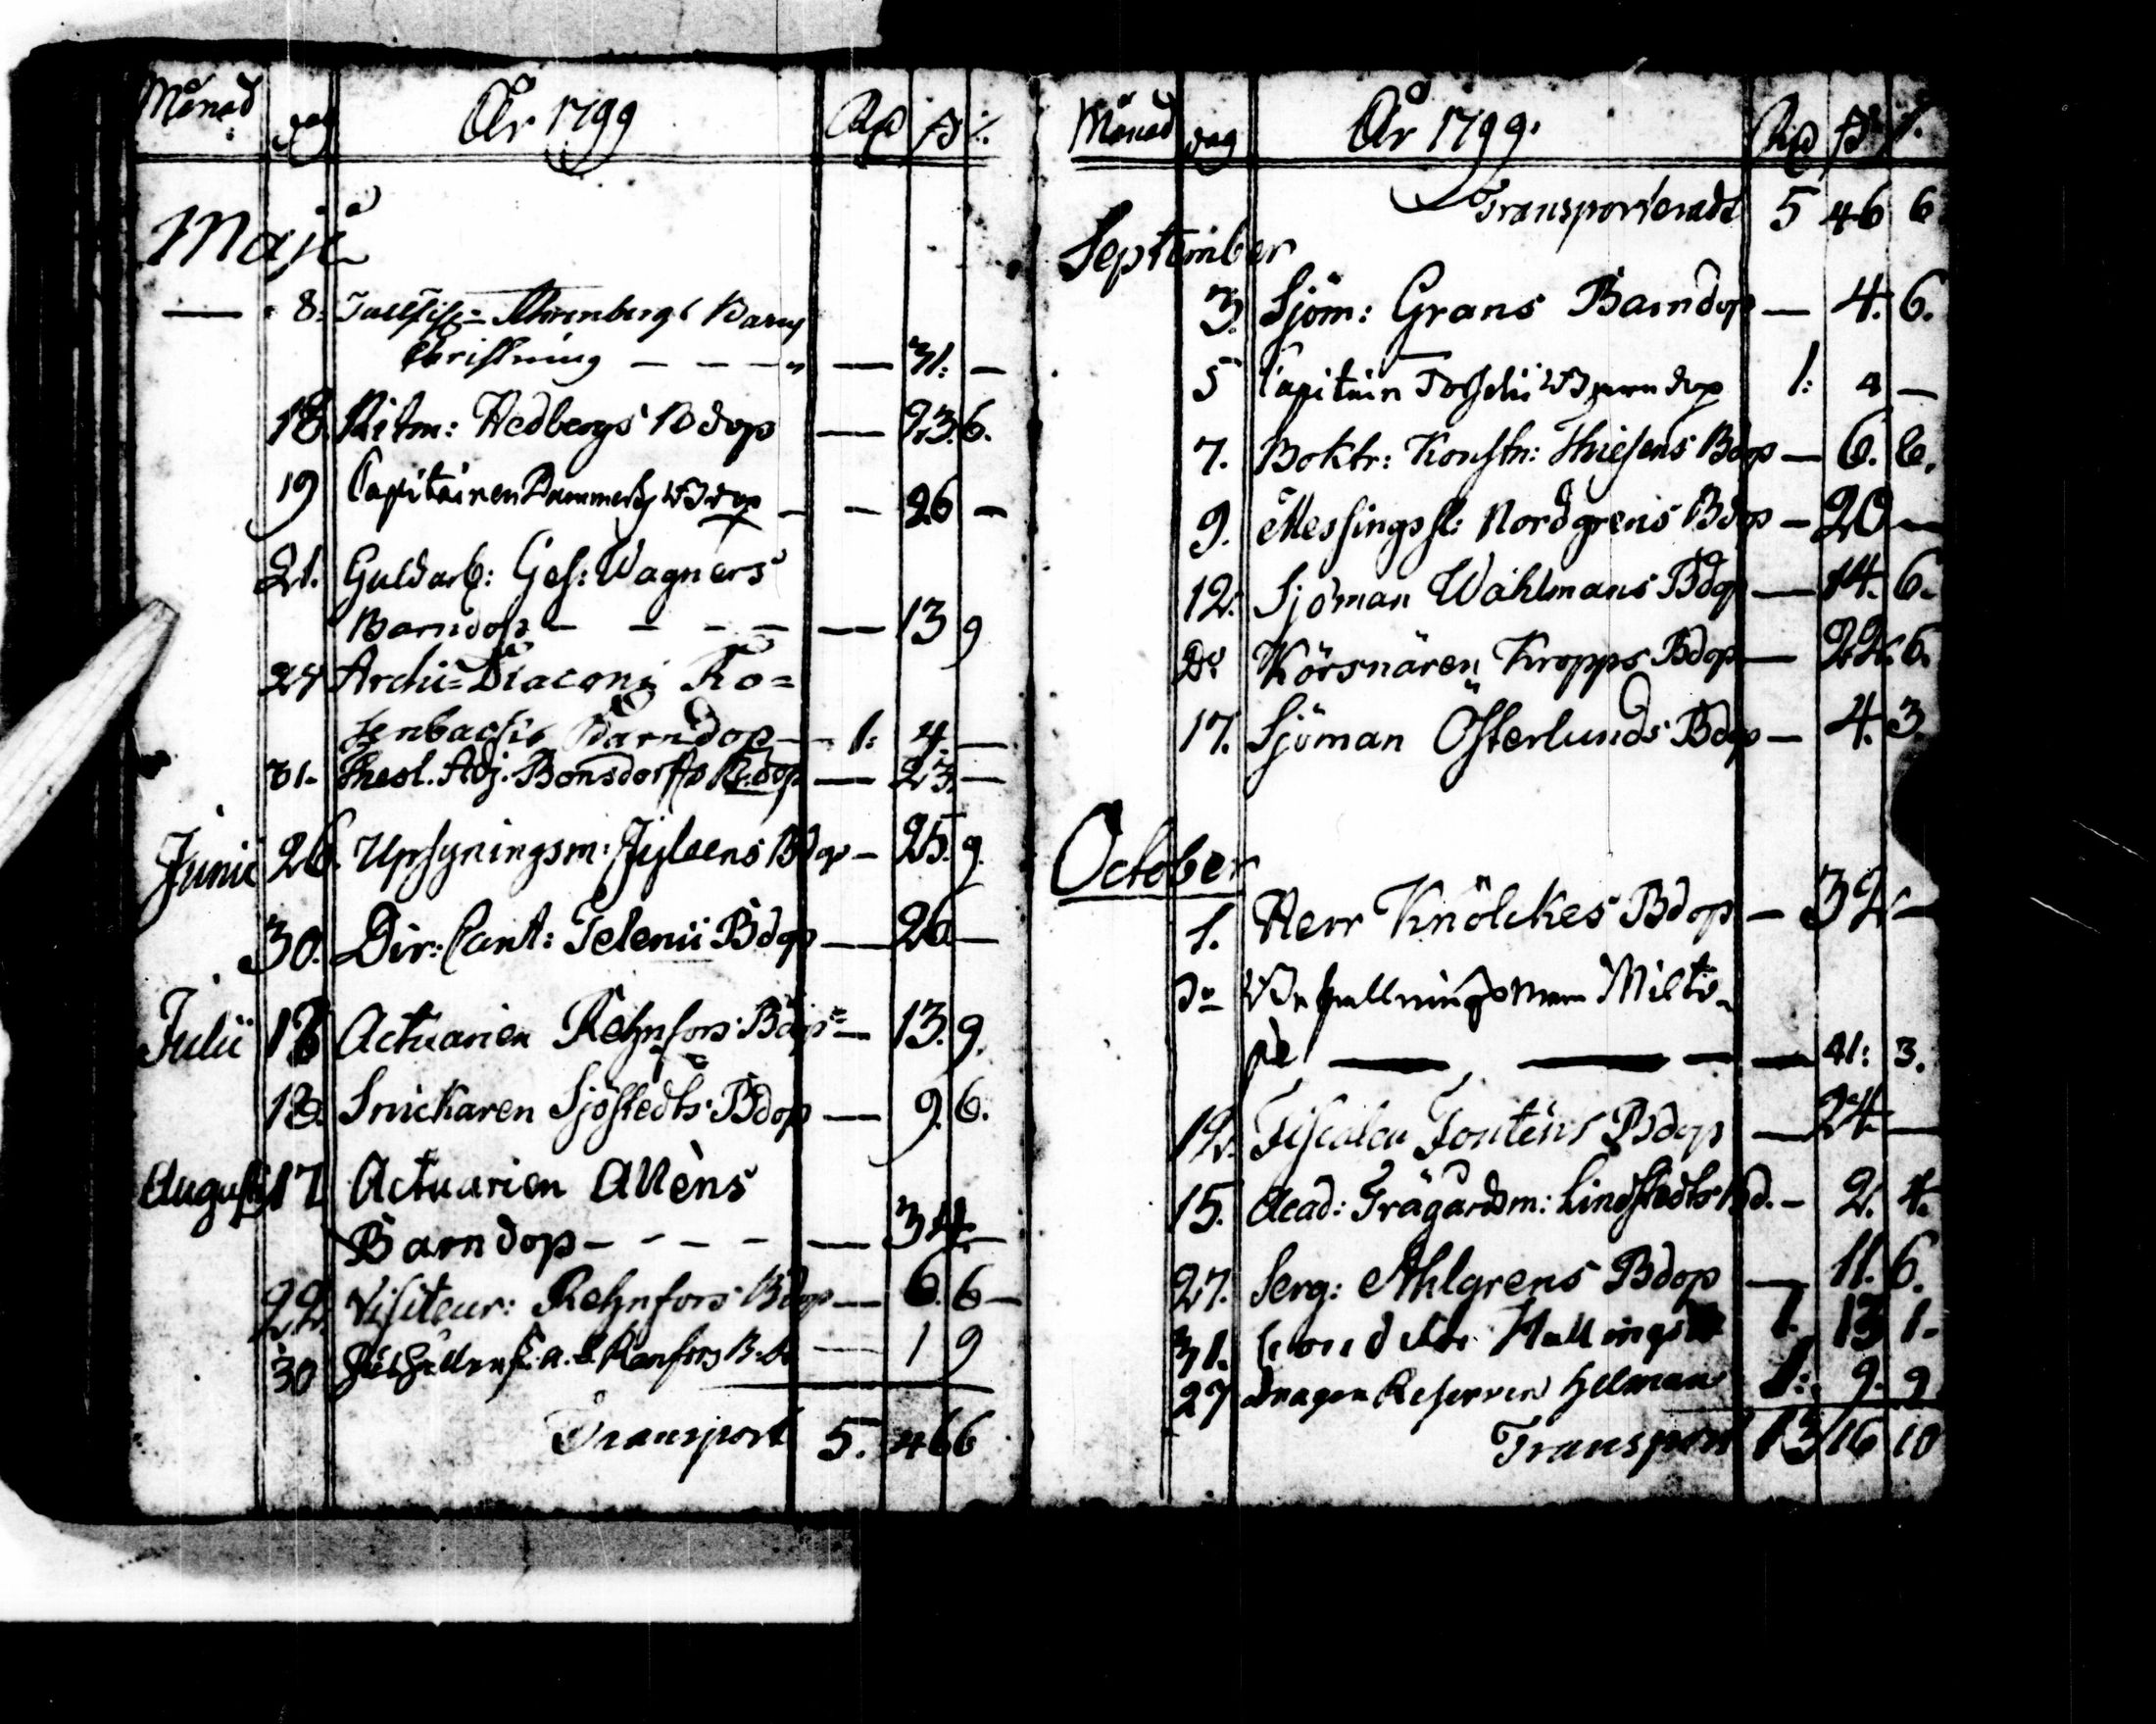 Månad dag År 1799 Rd ß
Maji
8. Ahrenbergs Barns
Christning — — — — 31: —
18. Ritm: Hedbergs Bdop — 23. 6.
19 Capitainen Bdop — — 26 —
21. Guldarb: Ges: Wagners
Barndop — — — — — 13 9
24 Archi=Diaconi Ro=
senbachs Barndop — 1: 4. —
31. Theol. Adj. Bonsdorffs Bdop — 23. —
Junii 26. Upsyningsm: Bdop — 25. 9.
30. Dir: Cant: Telenii Bdop — 26 —
Julii 13 Actuarien Rehnfors Bdop — 13. 9.
18. Snickaren Sjöstedts Bdop — 9. 6.
Augusti 17 Actuarien Allèns
Barndop — — — — — 34. —
22. Visiteur: Rehnfors Bdop — 6. 6 —
30 — 1 9
Transport 5. 46 6
Månad dag År 1799. Rd ß
Transporteradt 5 46 6
September
3. Sjöm: Grans Barndop — 4. 6.
5 Capitain Barndop 1: 4 —
7. Boktr: Konstn: Thiesens Bdop — 6. 6.
9. Messingssl: Nordgrens Bdop — 20 —
12. Sjöman Wåhlmans Bdop — 14. 6.
Do Körsnären Kropps Bdop — 22. 6.
17. Sjöman Österlunds Bdop — 4. 3.
October
1. Herr Knölckes Bdop — 32 —
Do Befallningsman Milto-
pæ — — — — 41: 3.
12. Fiscalen Fontèns Bdop — 24 —
15. Acad: Trägårdsm: Lindstedts Bd. — 2. 4.
27. Serg: Ahlgrens Bdop — 11. 6.
31. 1. 13 1.
27 Dragon Helman 1: 9. 9
Transport 13 16 10